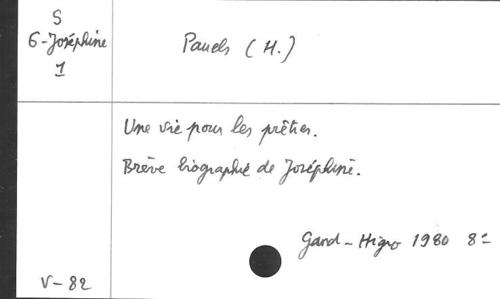 S
6-Joséphine
1
Pauels (H.)
Une vie pour les prêtres.
Brève biographie de Joséphine.
Gand - 1980 8°
V-82